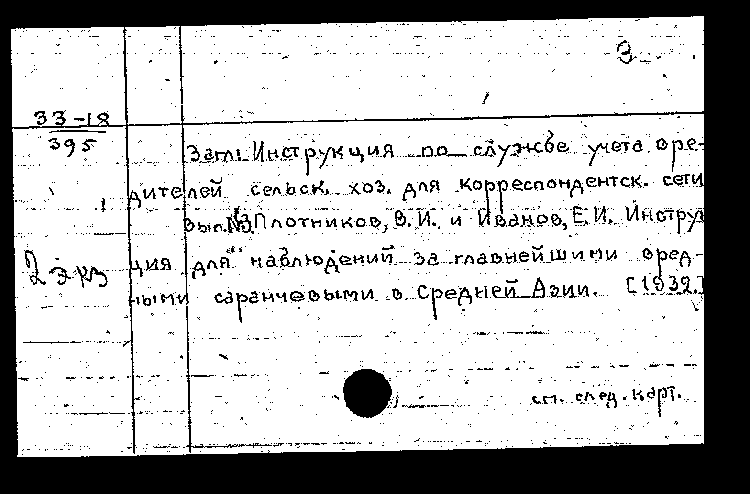 3
33-18
395
Загл. Инструкция по службе учета вре-
дителей сельск. хоз. для корреспондентск. сети
вып. №3 Плотников, В.И. и Иванов, Е.И. Инструк
ция для наблюдений за главнейшими вред-
2 экз
ными саранчевыми в Средней Азии. [1932.]
см. след. карт.